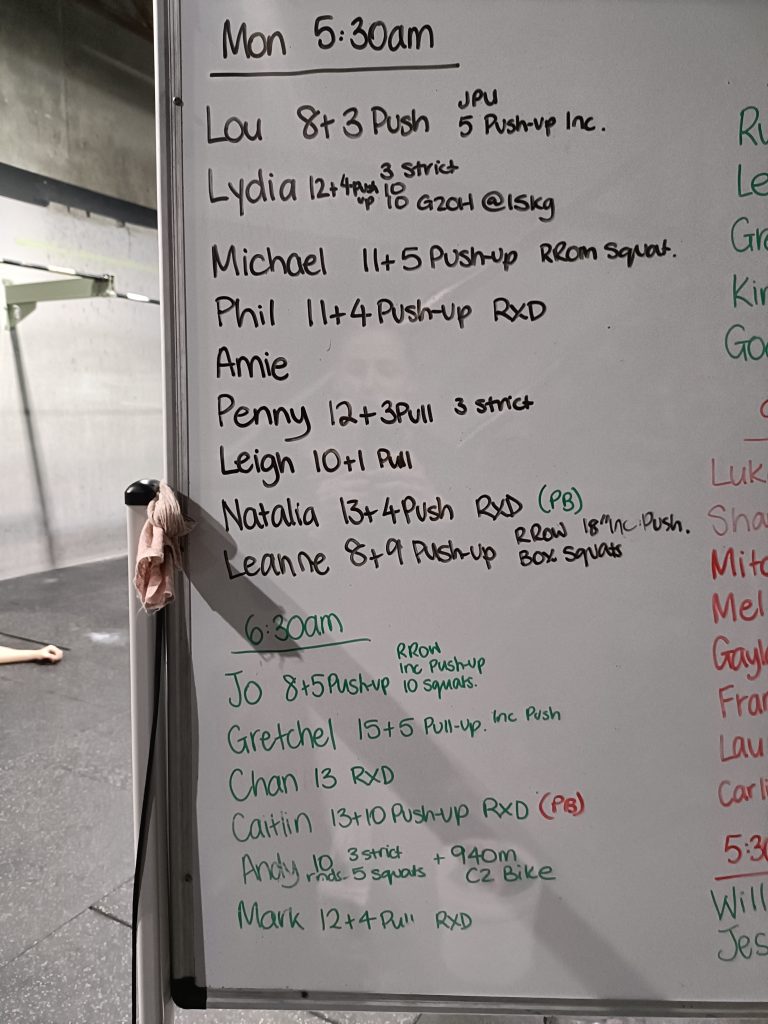 Mon 5:30am
Lou 8+3 Push JPU
5 Push-up Inc.
Lydia 12+4 push up 3 strict
10
10 G2OH @15kg
Michael 11+5 Push-up RRom Squat.
Phil 11+4 Push-up RXD
Amie
Penny 12+3 Pull 3 strict
Leigh 10+1 Pull
Natalia 13+4 Push RXD (PB)
Leanne 8+9 Push-up RRow 18" Inc. Push.
Box Squats
6:30am
Jo 8+5 Push-up RRow
Inc Push-up
10 Squats.
Gretchel 15+5 Pull-up. Inc Push
Chan 13 RXD
Caitlin 13+10 Push-up RXD (PB)
Andy 10 rnds. 3 strict
5 squats + 940m
C2 Bike
Mark 12+4 Pull RXD
Ru
Le
Gr
Kir
Goo
Luk
Sha
Mitc
Mel
Gayl
Fran
Lau
Carli
5:30
Will
Jes